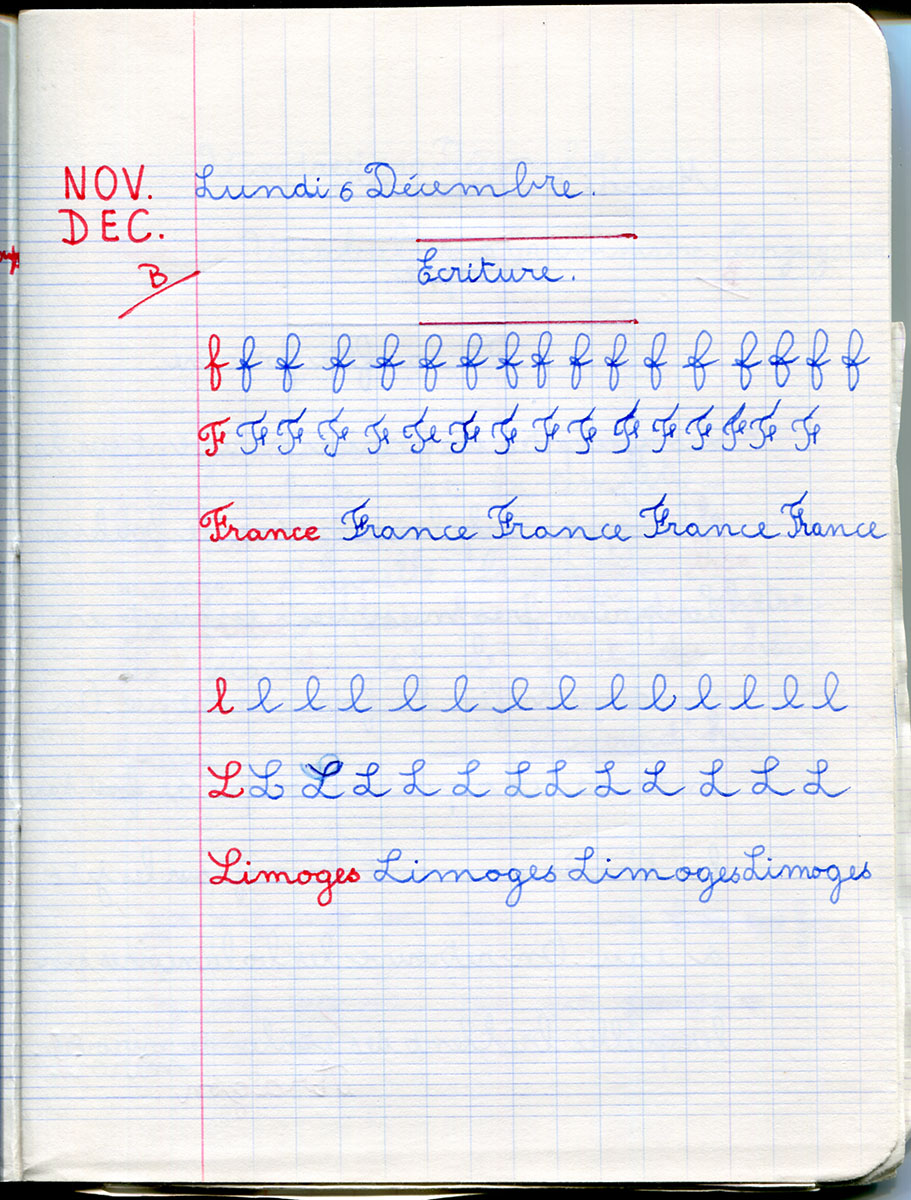 NOV.
DEC.
Lundi 6 Décembre.
B
Ecriture.
f f f f f f f f f f f f f f f f f
F F F F F F F F F F F F F F F F
France France France France France
l l l l l l l l l l l l l l
L L L L L L L L L L L L L
Limoges Limoges Limoges Limoges